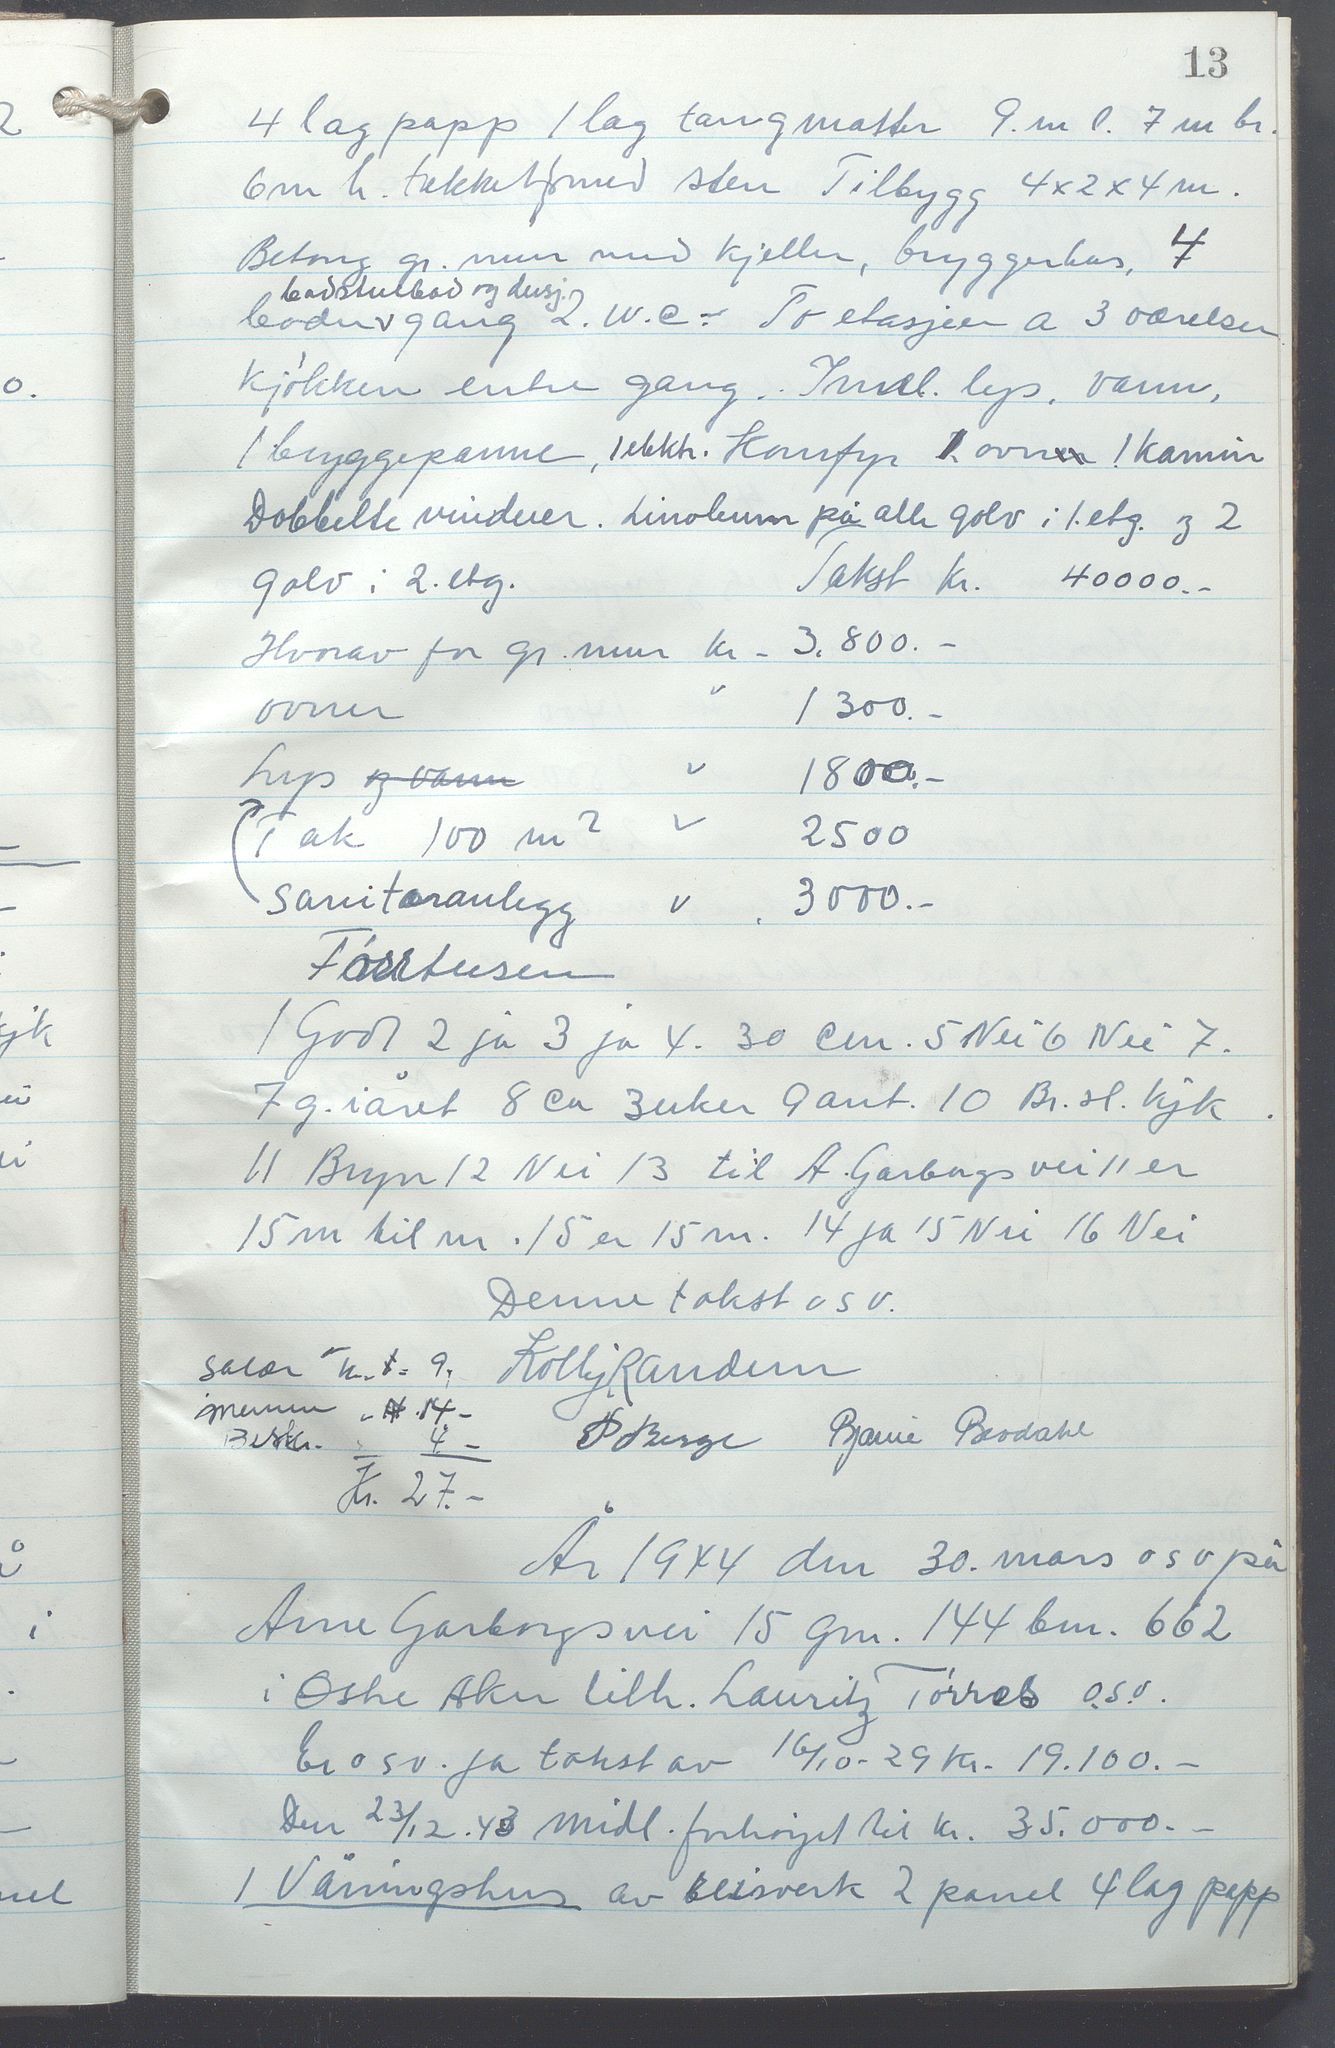 13
4 lag papp 1 lag tangmatter 9. m l. 7 m br.
6 m h. tekket med sten Tilbygg 4x2x4 m.
Betong gr. mur med kjeller, bryggerhus, 4
badstubad og dusj.
boder v gang 2. W.C. To etasjer a 3 værelser
kjøkken entre gang. Innl. lys, vann,
1 bryggepanne, 1 elektr. Komfyr 1 ovn 1 Kamin
Dobbelte vinduer. Linoleum på alle golv i 1. etg. og 2
golv i 2. etg. Takst kr. 40000.-
Hvorav for gr. mur kr - 3.800.-
ovner " 1300.-
Lys og vann " 1800.-
Tak 100 m2 " 2500
Sanitæranlegg " 3000.-
1 God 2 ja 3 ja 4. 30 cm. 5 Nei 6 Nei 7.
7 g. i året 8 ca 3 uker 9 ant. 10 Br. sl. kjk.
11 Bryn 12 Nei 13 til A. Garborgsvei 11 er
15 m til nr. 15 er 15 m. 14 ja 15 Nei 16 Nei
Denne takst osv.
Salær kr. 9,
14 -
Beskr. " 4 -
Kr. 27.-
Berge Bjarne Brodahl
År 1944 den 30. mars osv på
Arne Garborgsvei 15 gnr. 144 bnr. 662
i Østre Aker tilh. Lauritz Tørres o.s.v.
Er osv. ja takst av 16/10-29 kr. 19.100.-
Den 23/12.43 midl. forhøiet til kr. 35.000.-
1 Våningshus av reisverk 2 panel 4 lag papp